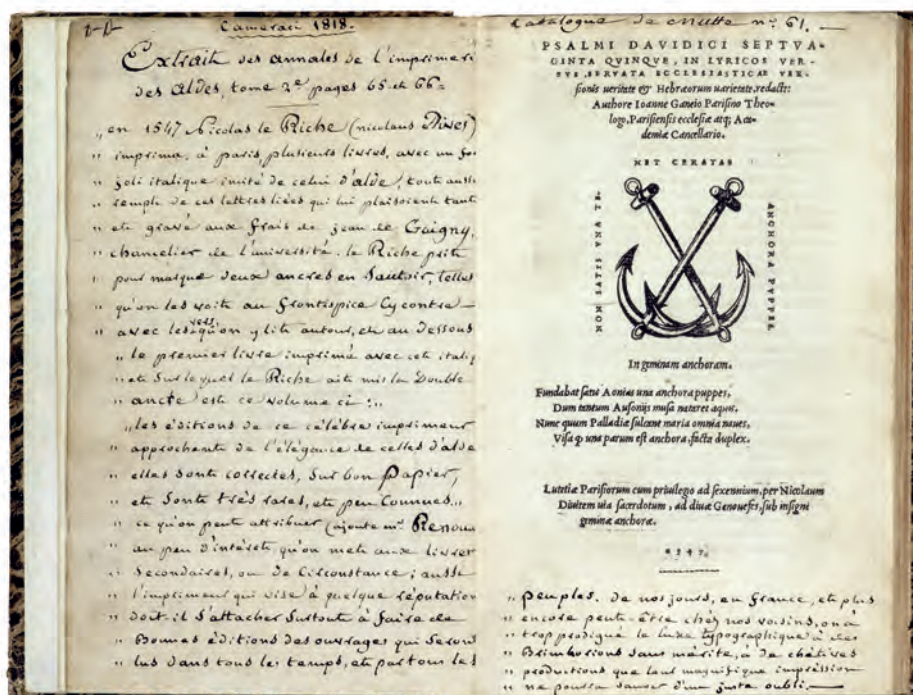 Cameraci 1818.
Extrait des annales de l'imprimeri
des Aldes, tome 2e pages 65 et 66=
„ en 1547 Nicolas le Riche (nicolaus Dives)
„ imprima, à paris, plusieurs livres, avec un
„ joli italique imité de celui d'alde, tout aussi
„ remple de ces lettres liées qui lui plaisoient tant
„ et gravé aux frais de jean de Gaigny,
„ chancelier de l'université. le Riche prit
„ pour marque deux ancres en Sautoir, telles
„ qu'on les voit au frontispice Cy contre —
„ avec les vers qu'on y lit autour, et au dessous
„ le premier livre imprimé avec cet italiq
„ et Sur lequel le Riche ait mis la Double
„ ancre est ce volume ci :„
„ les éditions de ce célèbre imprimeur
„ approchent de l'élégance de celles d'alde
„ elles sont correctes, Sur bon Papier,
„ et Sont très rares, et peu Connues„
„ ce qu'on peut attribuer (ajoute mr. Renou
„ au peu d'intérêt qu'on met aux livres
„ Secondaires, ou de Circonstance ; aussi
„ l'imprimeur qui vise à quelque réputation
„ doit-il S'attacher Surtout à faire de
„ Bonnes éditions des ouvrages qui Seront
„ lus dans tous les temps, et par tous les
Catalogue de Mutte nº. 61. —
PSALMI DAVIDICI SEPTVA-
GINTA QVINQVE, IN LYRICOS VER-
SVS, SERVATA ECCLESIASTICAE VER-
sionis ueritate & Hebræorum uarietate, redacti:
Authore Ioanne Ganeio Parisino Theo-
logo, Parisiensis ecclesiæ atq; Aca-
demiæ Cancellario.
NET CERATAS
NON SATIS VNA TE.
ANCHORA PVPPEIS.
In geminam anchoram.
Fundabat satis Aonias una anchora puppes,
Dum tantum Ausonijs musa nataret aquis.
Nunc quum Palladiæ sulcent maria omnia naues,
Visa q̃ una parum est anchora, facta duplex.
Lutetiæ Parisiorum cum priuilegio ad sexennium, per Nicolaum
Diuitem uia sacerdotum, ad diuæ Genouefes, sub insigni
geminæ anchoræ.
1547.
„ peuples. de nos jours, en France, et plus
„ encore peut-être chez nos voisins, on a
„ trop prodigué le luxe typographique à des
„ Brimborions sans mérite, à de chétives
„ productions que leur magnifique impression
„ ne pourra sauver d'un juste oubli. —